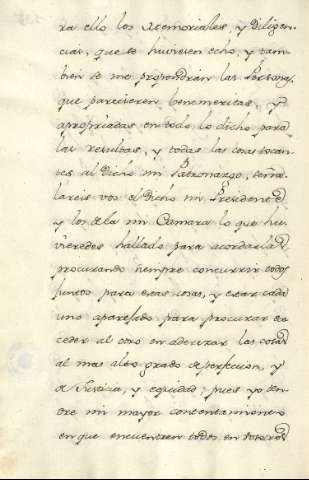 ra ello los Memoriales, y Diligen-
cias, que se huviesen echo, y tam-
bien se me propondrán las Personas
que parecieren benemeritas, y
apropriadas en todo lo dicho para
las resultas, y todas las cosas tocan-
tes al dicho mi Patronazgo, seña-
lareis vos el dicho mi Presidente
y los de la mi Camara lo que hu-
vieredes hallado para acordarlas
procurando siempre concurrir todos
juntos para estas cosas, y estar cada
uno aparejado para procurar ex-
ceder al otro en aderezar las cosas
al mas alto grado de perfeccion, y
de Justicia, y equidad; pues yo ten-
dre mi mayor contentamiento
en que encuentren todos en vosotros